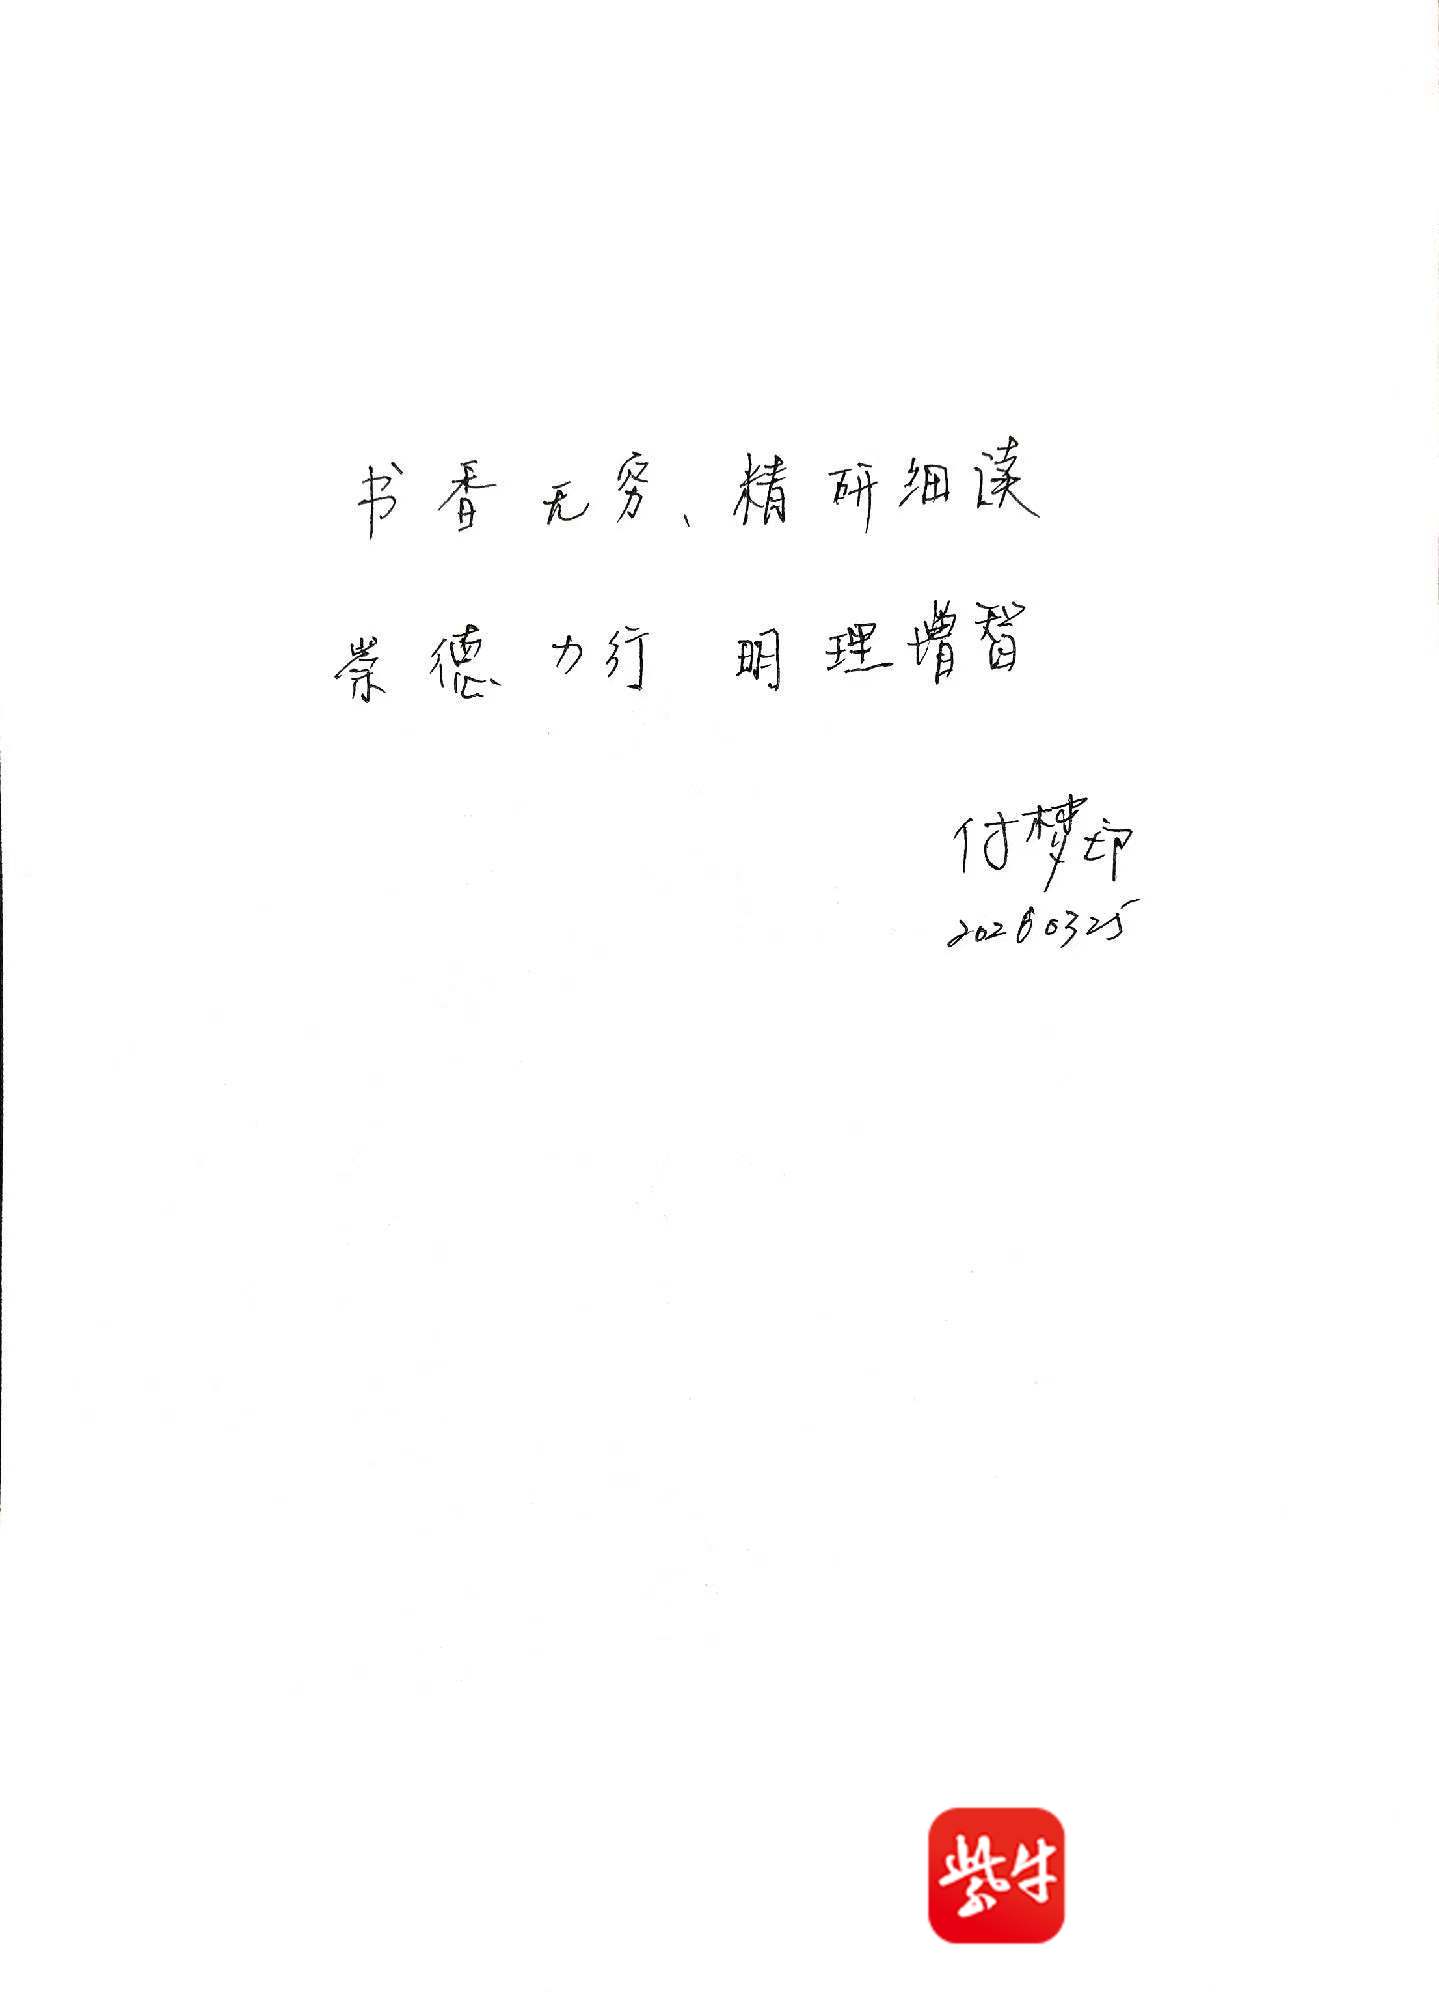 书香无穷、精研细读
崇德力行 明理增智
付梦印
20260325
紫牛